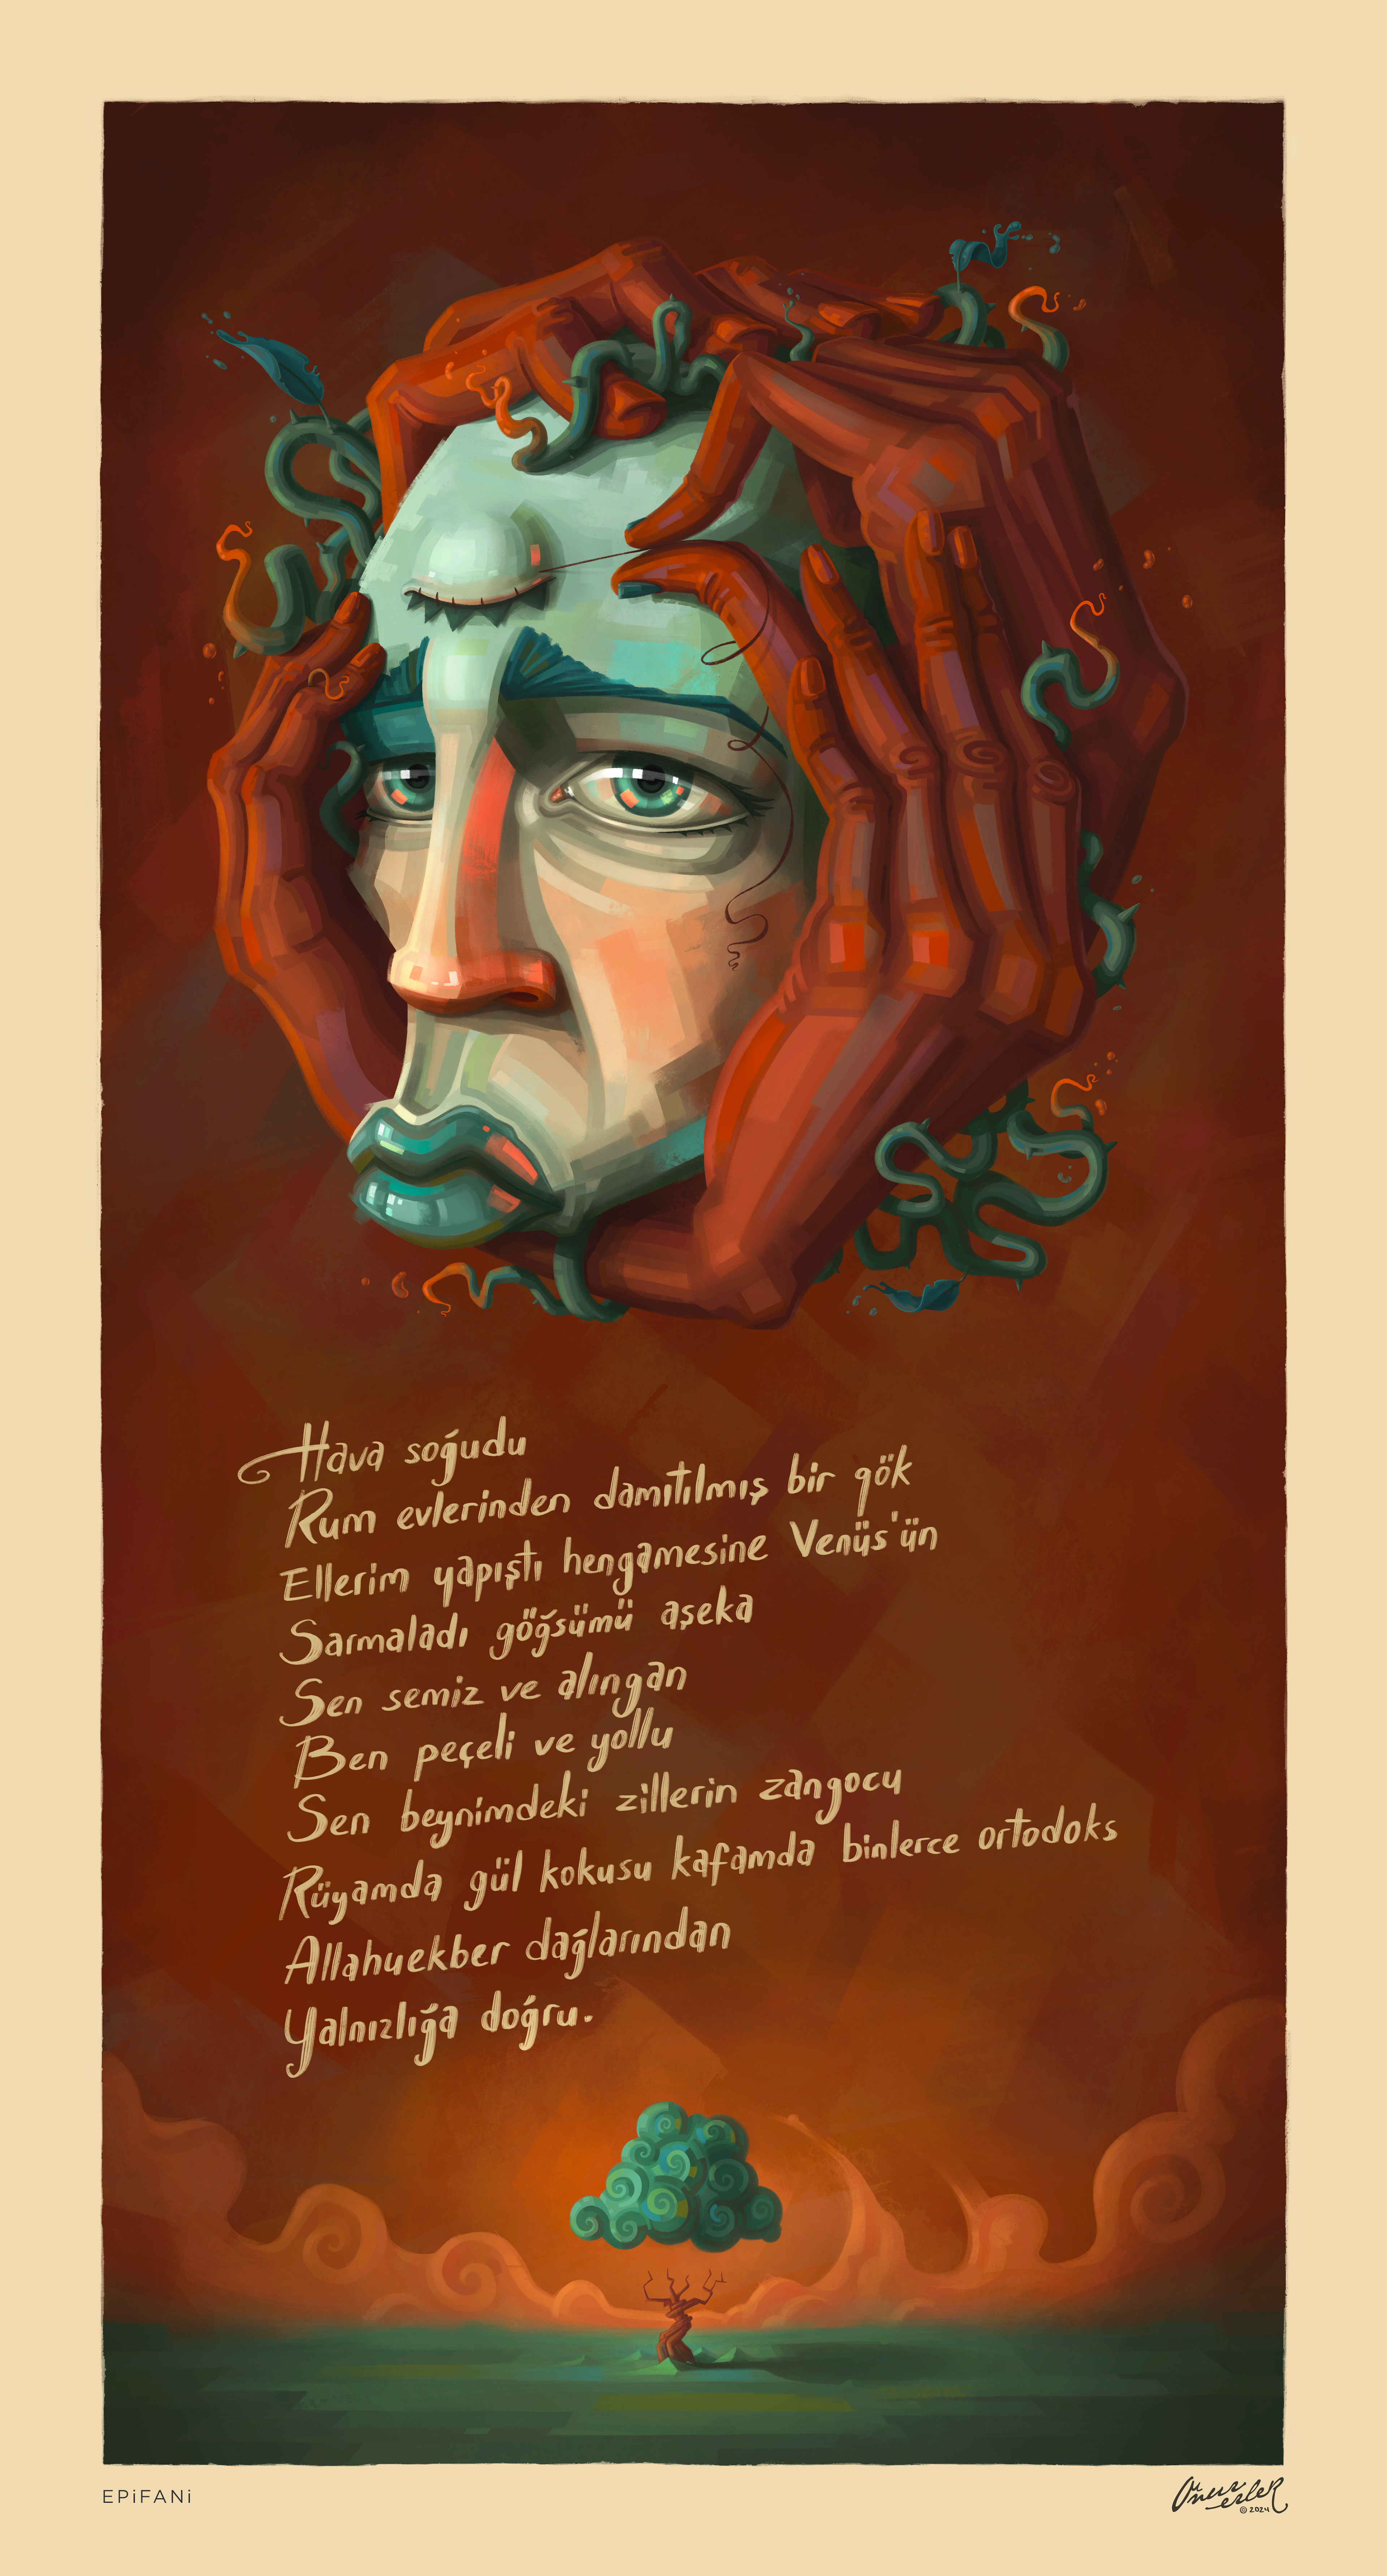 Hava soğudu
Rum evlerinden damıtılmış bir gök
Ellerim yapıştı hengamesine Venüs'ün
Sarmaladı göğsümü aşeka
Sen semiz ve alıngan
Ben peçeli ve yollu
Sen beynimdeki zillerin zangocu
Rüyamda gül kokusu kafamda binlerce ortodoks
Allahuekber dağlarından
Yalnızlığa doğru.
EPiFANi
© 2024